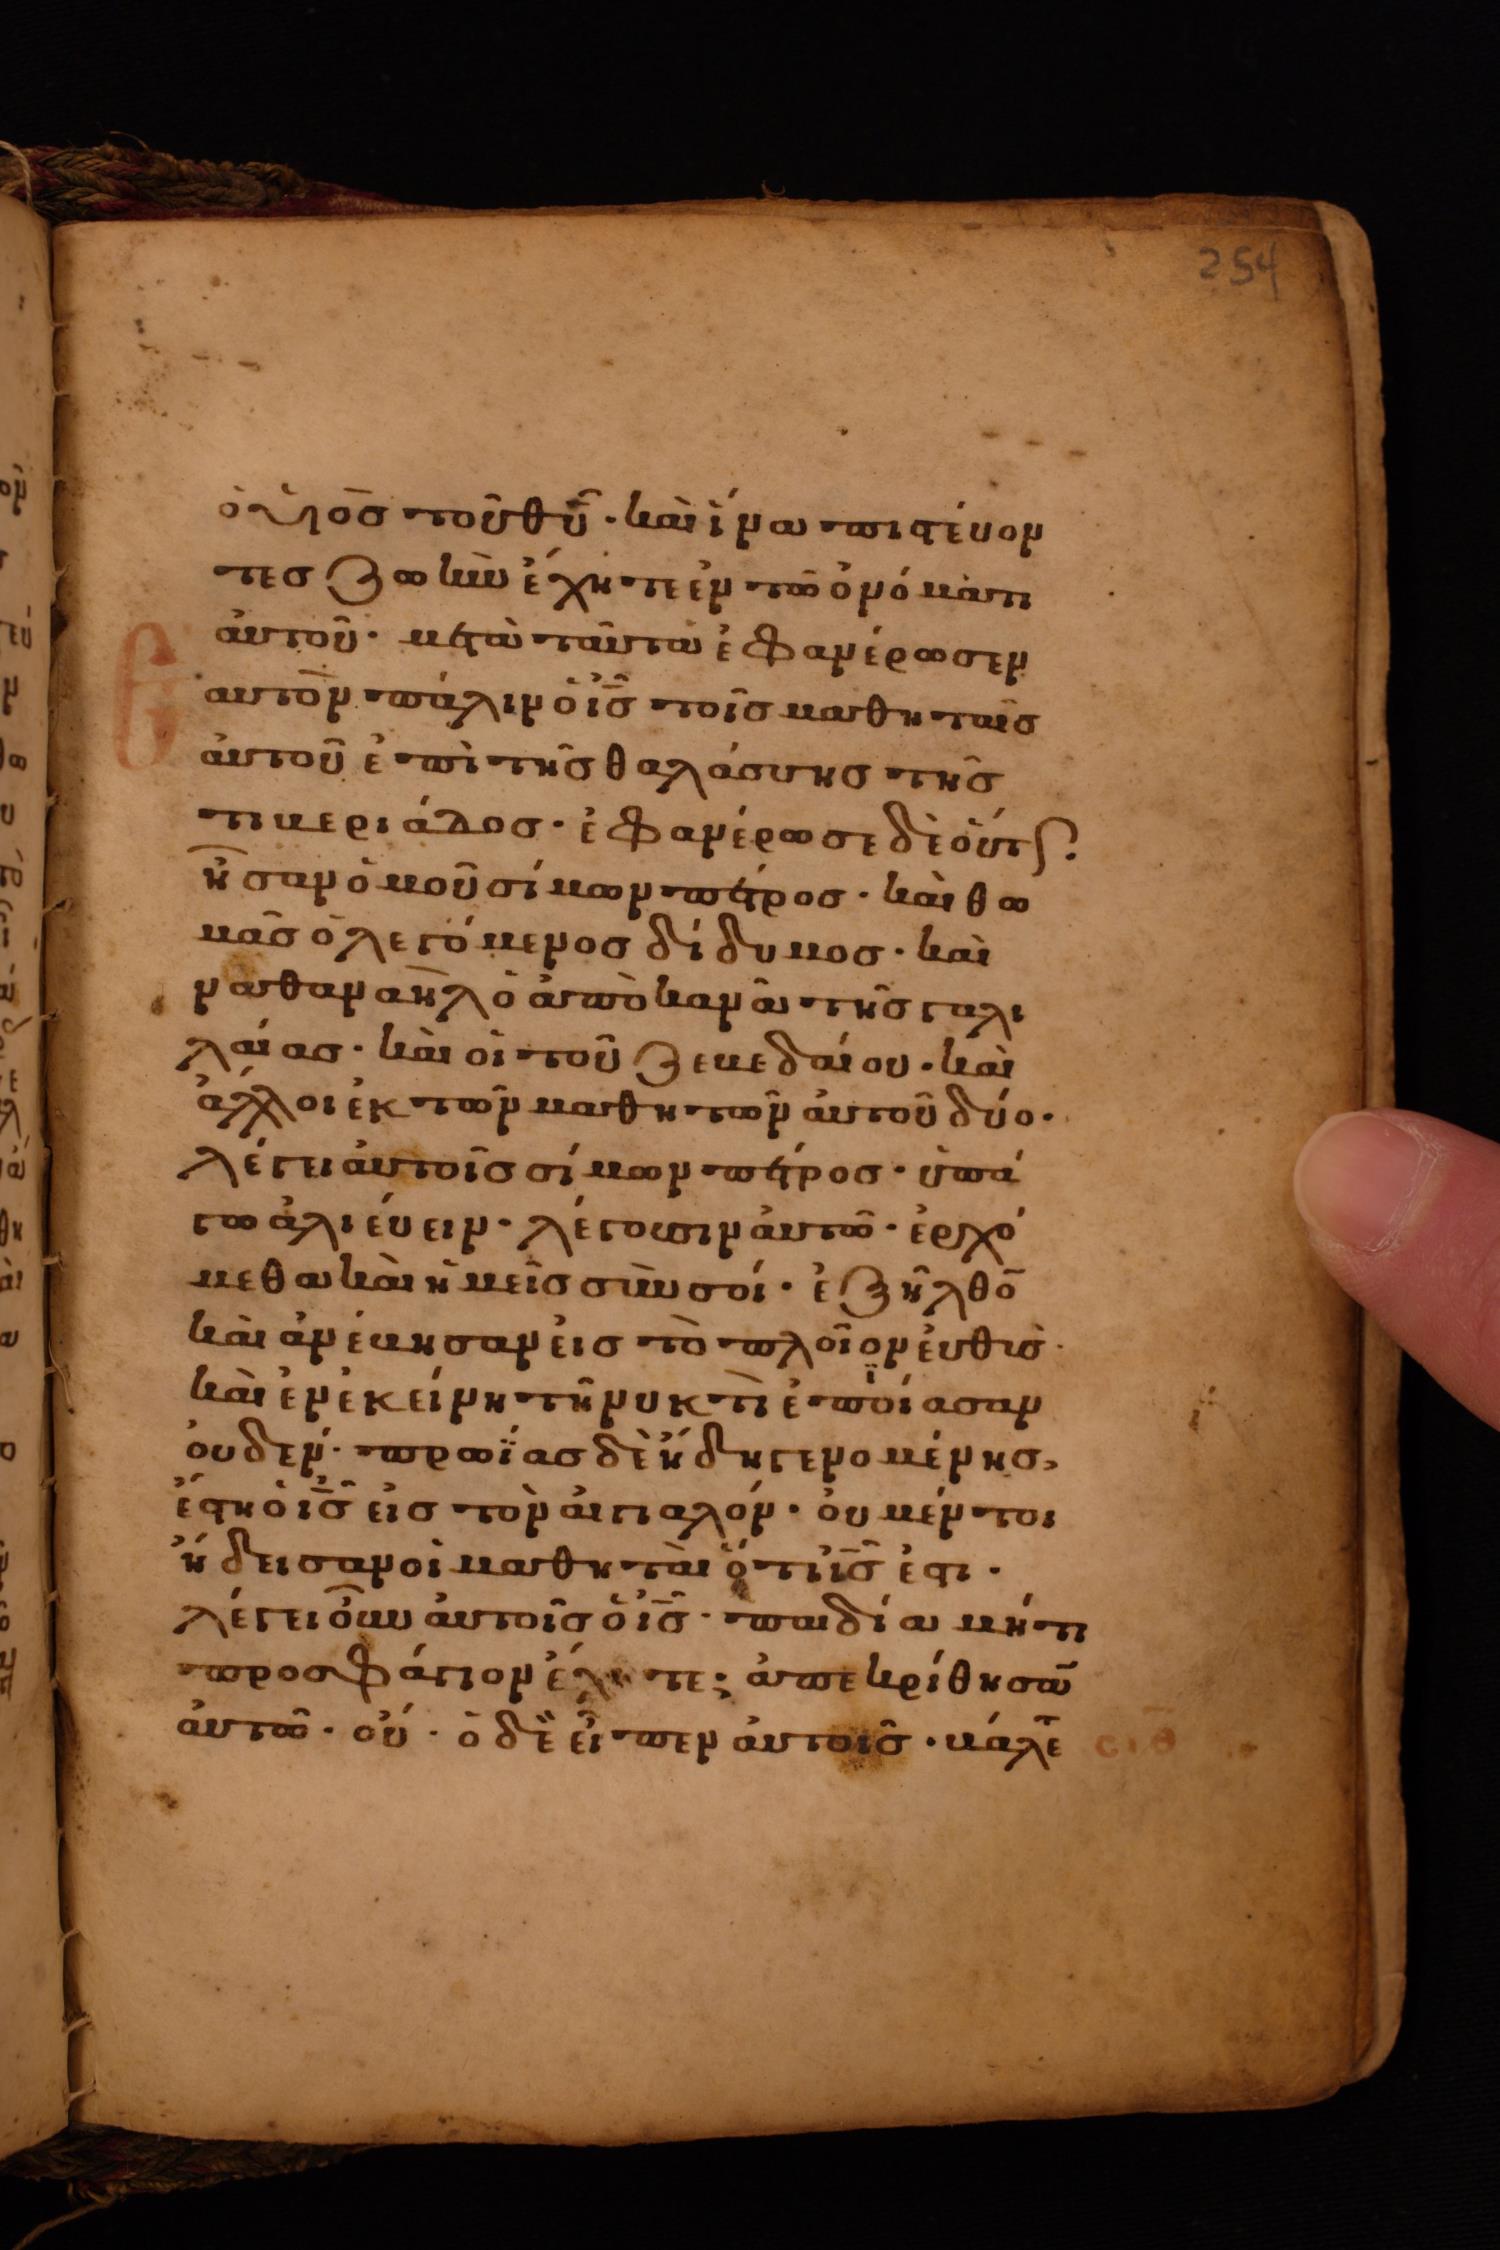 254
ὁ υἱὸσ τοῦ θῦ · καὶ ἵνα πιστέυον
τες ζωὴν ἔχητε ἐν τῶ ὀνόματι
ἀυτοῦ · μετὰ ταῦτα ἐφανέρωσεν
αυτὸν πάλιν ὁ ἰ̅σ̅ τοῖσ μαθηταῖσ
ἀυτοῦ ἐπὶ τῆσ θαλάσσησ τῆσ
τιβεριάδοσ · ἐφανέρωσε δὲ ὅυτς ·
ἦσαν ὁμοῦ σίμων πέτροσ · καὶ θω
μᾶσ ὁ λεγόμενοσ δίδυμοσ · καὶ
ναθαναὴλ ὁ ἀπὸ κανᾶ τῆσ γαλι
λαίασ · καὶ οἱ τοῦ ζεβεδαίου · καὶ
ἄλλοι ἐκ τῶν μαθητῶν ἀυτοῦ δύο ·
λέγει ἀυτοῖσ σίμων πέτροσ · ὑπά
γω ἁλιέυειν · λέγουσιν ἀυτῶ · ἐρχό
μεθα καὶ ἡμεῖσ σὺν σοί · ἐξῆλθο̅
καὶ ἀνέβησαν ἐισ τὸ πλοῖον ἐυθὺσ ·
καὶ ἐν ἐκείνη τῆ νυκτὶ ἐπϊάσαν
ὀυδέν · πρωΐασ δὲ ἤδη γενομένησ,
ἔστη ὁ ἰ̅σ̅ εἰσ τὸν ἀιγιαλόν · ὀυ μέντοι
ἤδεισαν οἱ μαθηταὶ ὅτι ἰ̅σ̅ ἐστι ·
λέγει οὖν ἀυτοῖσ ὁ ἰ̅σ̅ · παιδία μήτι
προσφάγιον ἔχετε; ἀπεκρίθησα̅
ἀυτῶ · οὐ · ὁ δὲ εἶπεν ἀυτοῖσ · βάλε̅
σιθ